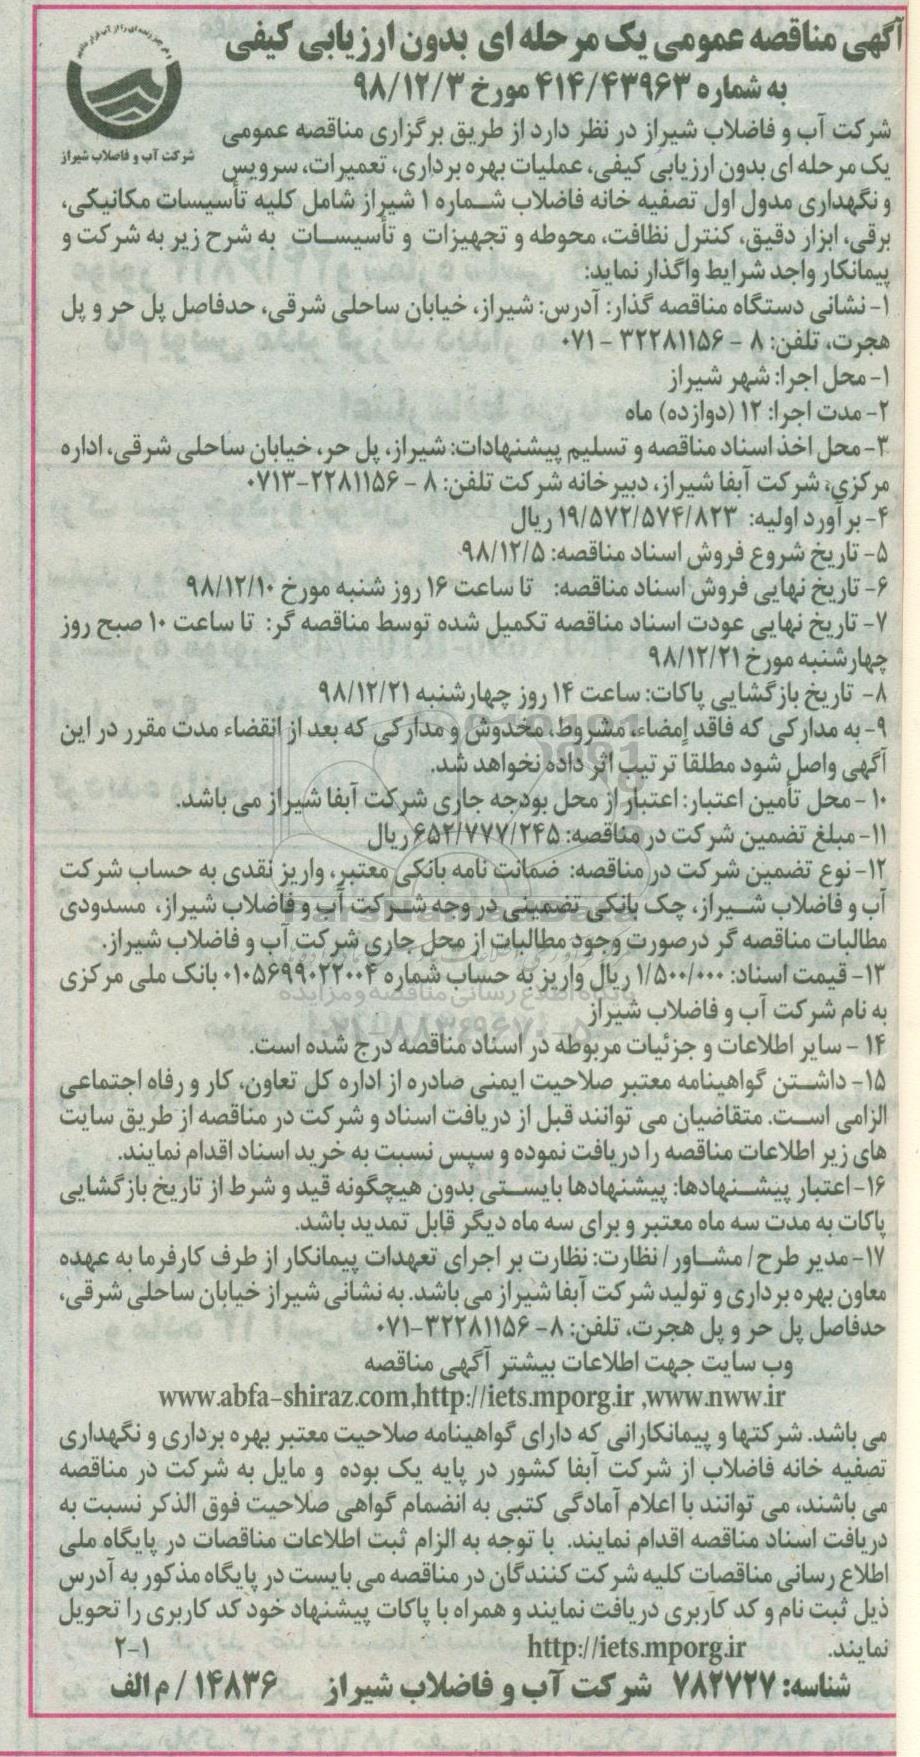 آگهی مناقصه عمومی یک مرحله ای بدون ارزیابی کیفی
به شماره ۴۱۴/۴۳۹۶۳ مورخ ۹۸/۱۲/۳
شرکت آب و فاضلاب شیراز
شرکت آب و فاضلاب شیراز در نظر دارد از طریق برگزاری مناقصه عمومی
یک مرحله ای بدون ارزیابی کیفی، عملیات بهره برداری، تعمیرات، سرویس
و نگهداری مدول اول تصفیه خانه فاضلاب شماره ۱ شیراز شامل کلیه تأسیسات مکانیکی،
برقی، ابزار دقیق، کنترل نظافت، محوطه و تجهیزات و تأسیسات به شرح زیر به شرکت و
پیمانکار واجد شرایط واگذار نماید:
۱- نشانی دستگاه مناقصه گذار: آدرس: شیراز، خیابان ساحلی شرقی، حدفاصل پل حر و پل
هجرت، تلفن: ۸ - ۳۲۲۸۱۱۵۶ - ۰۷۱
۱- محل اجرا: شهر شیراز
۲- مدت اجرا: ۱۲ (دوازده) ماه
۳- محل اخذ اسناد مناقصه و تسلیم پیشنهادات: شیراز، پل حر، خیابان ساحلی شرقی، اداره
مرکزی، شرکت آبفا شیراز، دبیرخانه شرکت تلفن: ۸ - ۲۲۸۱۱۵۶-۰۷۱۳
۴- برآورد اولیه: ۱۹/۵۷۲/۵۷۴/۸۲۳ ریال
۵- تاریخ شروع فروش اسناد مناقصه: ۹۸/۱۲/۵
۶- تاریخ نهایی فروش اسناد مناقصه: تا ساعت ۱۶ روز شنبه مورخ ۹۸/۱۲/۱۰
۷- تاریخ نهایی عودت اسناد مناقصه تکمیل شده توسط مناقصه گر: تا ساعت ۱۰ صبح روز
چهارشنبه مورخ ۹۸/۱۲/۲۱
۸- تاریخ بازگشایی پاکات: ساعت ۱۴ روز چهارشنبه ۹۸/۱۲/۲۱
۹- به مدارکی که فاقد امضاء، مشروط، مخدوش و مدارکی که بعد از انقضاء مدت مقرر در این
آگهی واصل شود مطلقاً ترتیب اثر داده نخواهد شد.
۱۰- محل تأمین اعتبار: اعتبار از محل بودجه جاری شرکت آبفا شیراز می باشد.
۱۱- مبلغ تضمین شرکت در مناقصه: ۶۵۲/۷۷۷/۲۴۵ ریال
۱۲- نوع تضمین شرکت در مناقصه: ضمانت نامه بانکی معتبر، واریز نقدی به حساب شرکت
آب و فاضلاب شیراز، چک بانکی تضمینی در وجه شرکت آب و فاضلاب شیراز، مسدودی
مطالبات مناقصه گر درصورت وجود مطالبات از محل جاری شرکت آب و فاضلاب شیراز.
۱۳- قیمت اسناد: ۱/۵۰۰/۰۰۰ ریال واریز به حساب شماره ۰۱۰۵۶۹۹۰۲۲۰۰۴ بانک ملی مرکزی
به نام شرکت آب و فاضلاب شیراز
۱۴ - سایر اطلاعات و جزئیات مربوطه در اسناد مناقصه درج شده است.
۱۵- داشتن گواهینامه معتبر صلاحیت ایمنی صادره از اداره کل تعاون، کار و رفاه اجتماعی
الزامی است. متقاضیان می توانند قبل از دریافت اسناد و شرکت در مناقصه از طریق سایت
های زیر اطلاعات مناقصه را دریافت نموده و سپس نسبت به خرید اسناد اقدام نمایند.
۱۶- اعتبار پیشنهادها: پیشنهادها بایستی بدون هیچگونه قید و شرط از تاریخ بازگشایی
پاکات به مدت سه ماه معتبر و برای سه ماه دیگر قابل تمدید باشد.
۱۷- مدیر طرح/ مشاور/ نظارت: نظارت بر اجرای تعهدات پیمانکار از طرف کارفرما به عهده
معاون بهره برداری و تولید شرکت آبفا شیراز می باشد. به نشانی شیراز خیابان ساحلی شرقی،
حدفاصل پل حر و پل هجرت، تلفن: ۸- ۳۲۲۸۱۱۵۶-۰۷۱
وب سایت جهت اطلاعات بیشتر آگهی مناقصه
www.abfa-shiraz.com,http://iets.mporg.ir ,www.nww.ir
می باشد. شرکتها و پیمانکارانی که دارای گواهینامه صلاحیت معتبر بهره برداری و نگهداری
تصفیه خانه فاضلاب از شرکت آبفا کشور در پایه یک بوده و مایل به شرکت در مناقصه
می باشند، می توانند با اعلام آمادگی کتبی به انضمام گواهی صلاحیت فوق الذکر نسبت به
دریافت اسناد مناقصه اقدام نمایند. با توجه به الزام ثبت اطلاعات مناقصات در پایگاه ملی
اطلاع رسانی مناقصات کلیه شرکت کنندگان در مناقصه می بایست در پایگاه مذکور به آدرس
ذیل ثبت نام و کد کاربری دریافت نمایند و همراه با پاکات پیشنهاد خود کد کاربری را تحویل
نمایند. http://iets.mporg.ir ۲-۱
شناسه: ۷۸۲۷۲۷ شرکت آب و فاضلاب شیراز ۱۴۸۳۶ / م الف